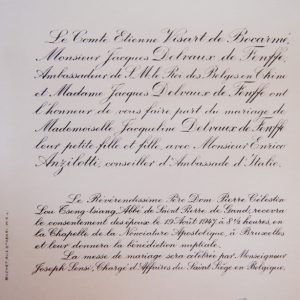 Le Comte Etienne Visart de Bocarmé,
Monsieur Jacques Delvaux de Fenffe,
Ambassadeur de S.M. le Roi des Belges en Chine
et Madame Jacques Delvaux de Fenffe ont
l'honneur de vous faire part du mariage de
Mademoiselle Jacqueline Delvaux de Fenffe
leur petite fille et fille, avec Monsieur Enrico
Anzilotti, conseiller d'Ambassade d'Italie.
Le Révérendissime Père Dom Pierre Célestin
Lou Tseng-tsiang, Abbé de Saint Pierre de Gand, recevra
le consentement des époux le 19 Août 1947 à 8½ heures, en
la Chapelle de la Nonciature Apostolique, à Bruxelles
et leur donnera la bénédiction nuptiale.
La messe de mariage sera célébrée par Monseigneur
Joseph Sensi, Chargé d'Affaires du Saint Siège en Belgique.